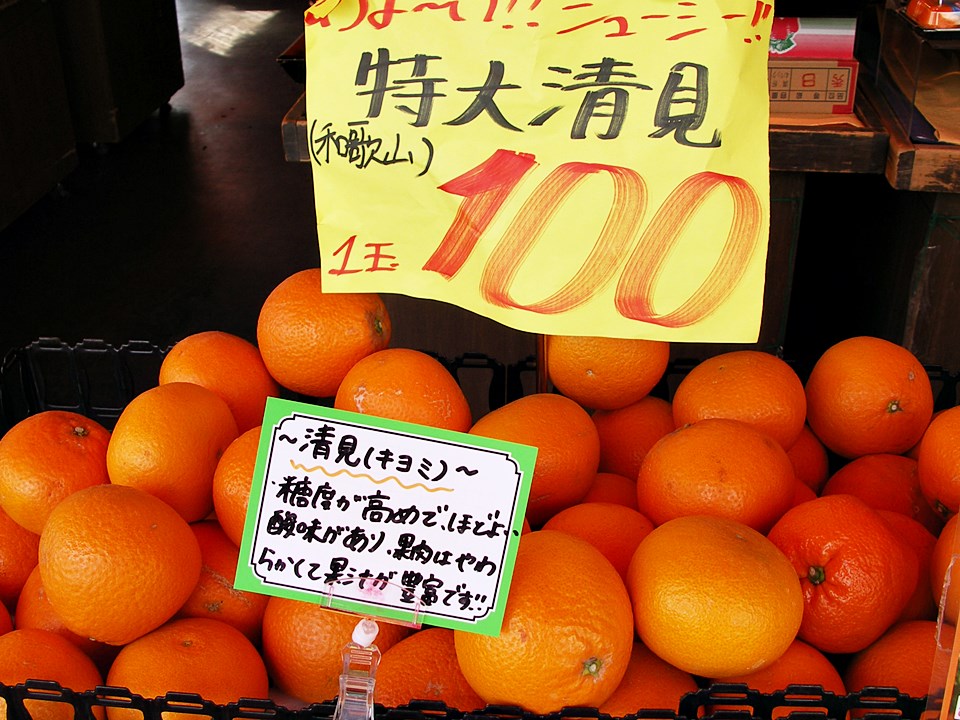 ニューシー!!
特大清見
(和歌山)
1玉 100
~清見(キヨミ)~
・糖度が高めで、ほどよい
酸味があり、果肉はやわ
らかくて果汁が豊富です!!